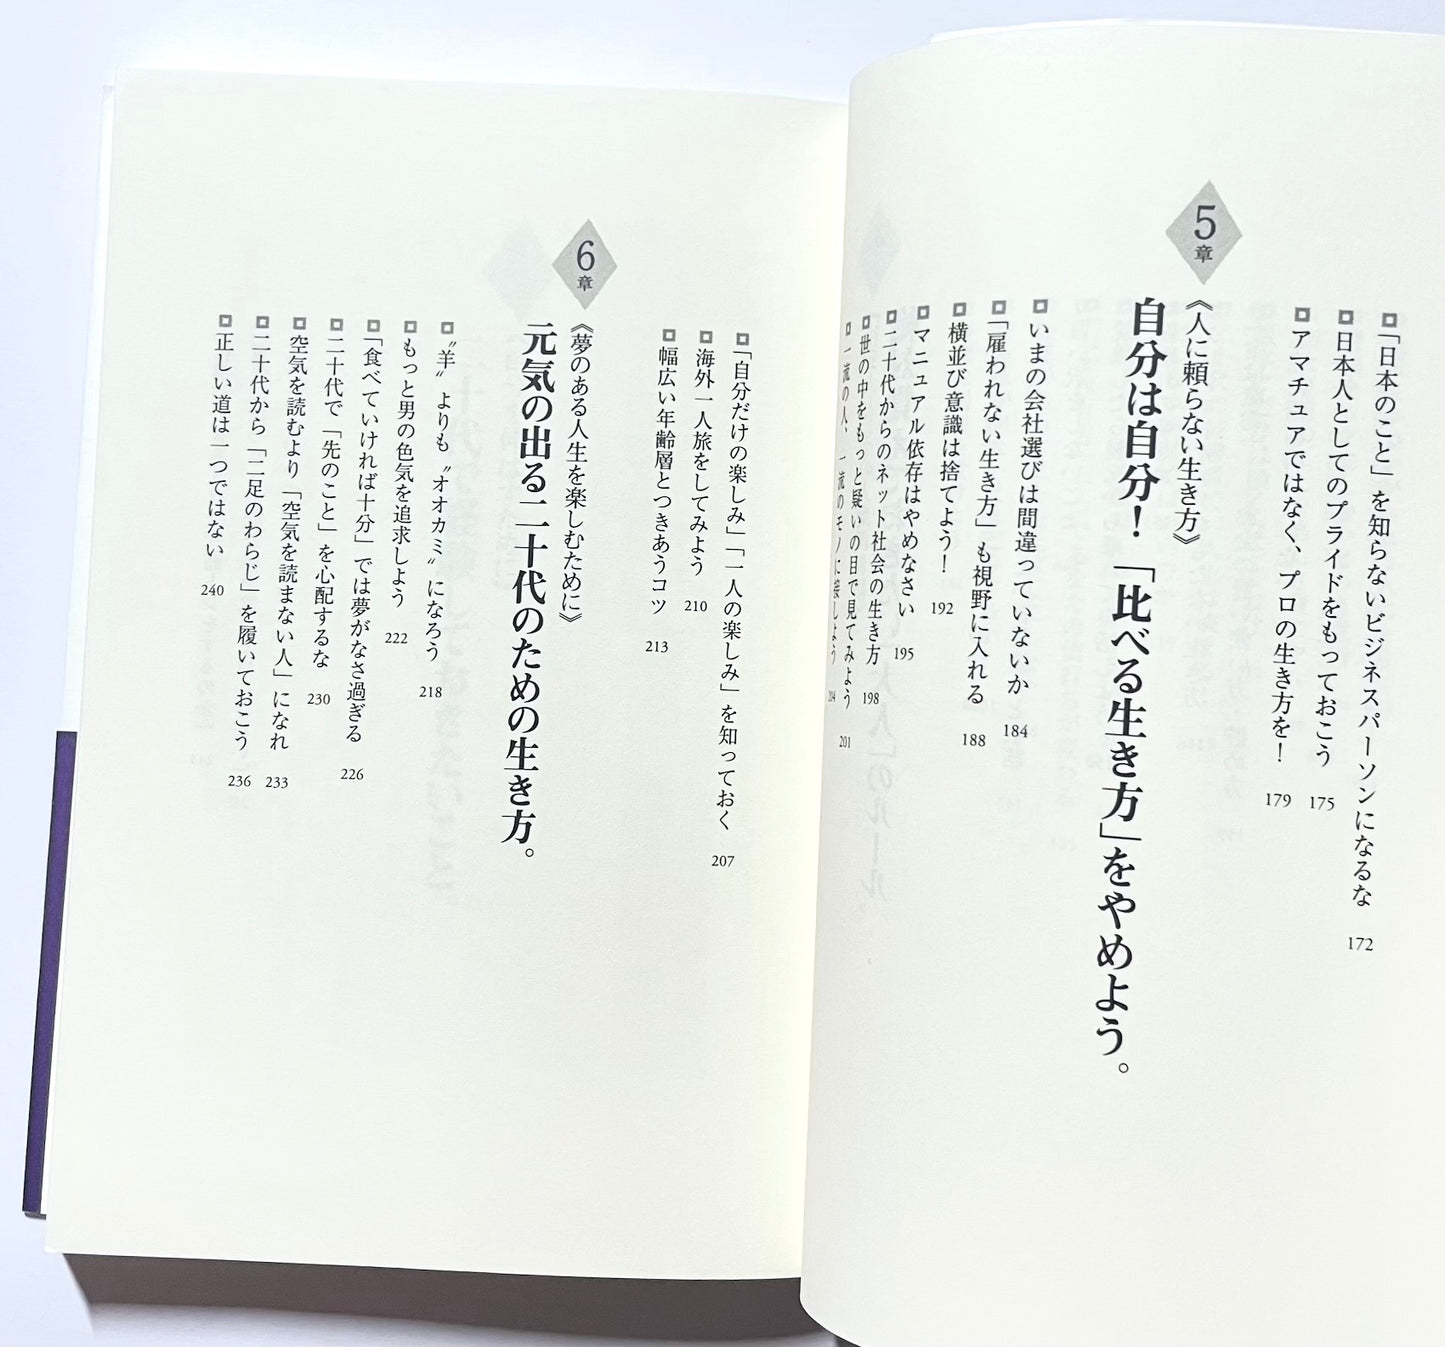 「日本のこと」を知らないビジネスパーソンになるな 172
日本人としてのプライドをもっておこう 175
アマチュアではなく、プロの生き方を！ 179
5章
《人に頼らない生き方》
自分は自分！「比べる生き方」をやめよう。
いまの会社選びは間違っていないか 184
「雇われない生き方」も視野に入れる 188
横並び意識は捨てよう！ 192
マニュアル依存はやめなさい 195
二十代からのネット社会の生き方 198
世の中をもっと疑いの目で見てみよう 201
一流の人、一流のモノに接しよう 204
「自分だけの楽しみ」「一人の楽しみ」を知っておく 207
海外一人旅をしてみよう 210
幅広い年齢層とつきあうコツ 213
6章
《夢のある人生を楽しむために》
元気の出る二十代のための生き方。
〝羊〟よりも〝オオカミ〟になろう 218
もっと男の色気を追求しよう 222
「食べていければ十分」では夢がなさ過ぎる 226
二十代で「先のこと」を心配するな 230
空気を読むより「空気を読まない人」になれ 233
二十代から「二足のわらじ」を履いておこう 236
正しい道は一つではない 240